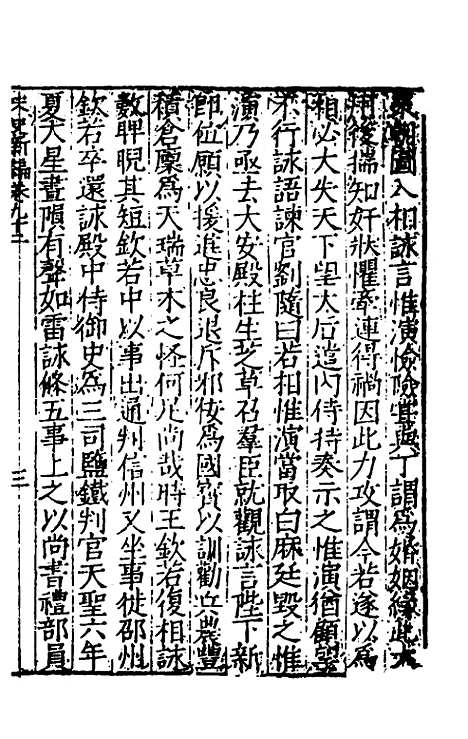 來朝圖入相詠言惟演憸險嘗與丁謂爲婚姻緣此大
用後揣知奸狀懼牽連得禍因此力攻謂今若遂以爲
相必大失天下望太后遣內侍持奏示之惟演猶顧望
不行詠語諫官劉隨曰若相惟演當取白麻廷毀之惟
演乃亟去大安殿柱生芝草召羣臣就觀詠言陛下新
即位願以援進忠良退斥邪佞爲國寳以訓勸兵農豐
積倉廩爲天瑞草木之怪何足尚哉時王欽若復相詠
數睥睨其短欽若中以事出通判信州又坐事徙邵州
欽若卒還詠殿中侍御史爲三司鹽鐵判官天聖六年
夏大星晝隕有聲如雷詠條五事上之以尚書禮部員
宋史新編卷九十二 三